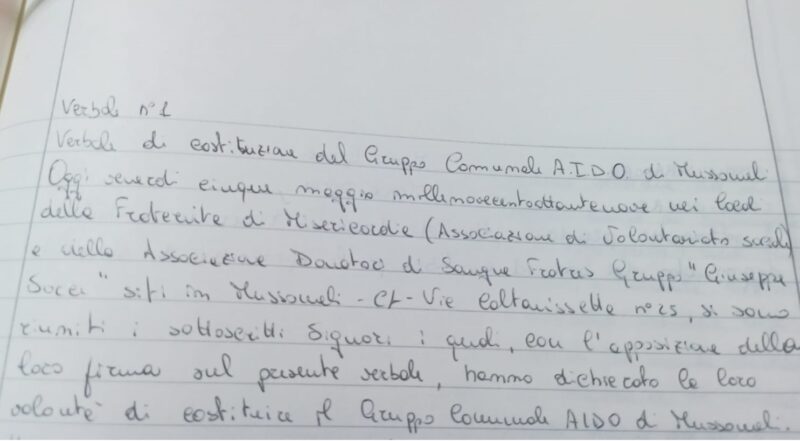 Verbale n°1
Verbale di costituzione del Gruppo Comunale A.I.D.O. di Mussomeli
Oggi venerdì cinque maggio millenovecentottantanove nei locali
della Fraternita di Misericordia (Associazione di Volontariato sociale)
e della Associazione Donatori di Sangue Fratres Gruppo "Giuseppe
Sorci" siti in Mussomeli - CL - Via Caltanissetta n°25, si sono
riuniti i sottoscritti Signori i quali, con l'apposizione della
loro firma sul presente verbale, hanno dichiarato la loro
volontà di costituire il Gruppo Comunale AIDO di Mussomeli.